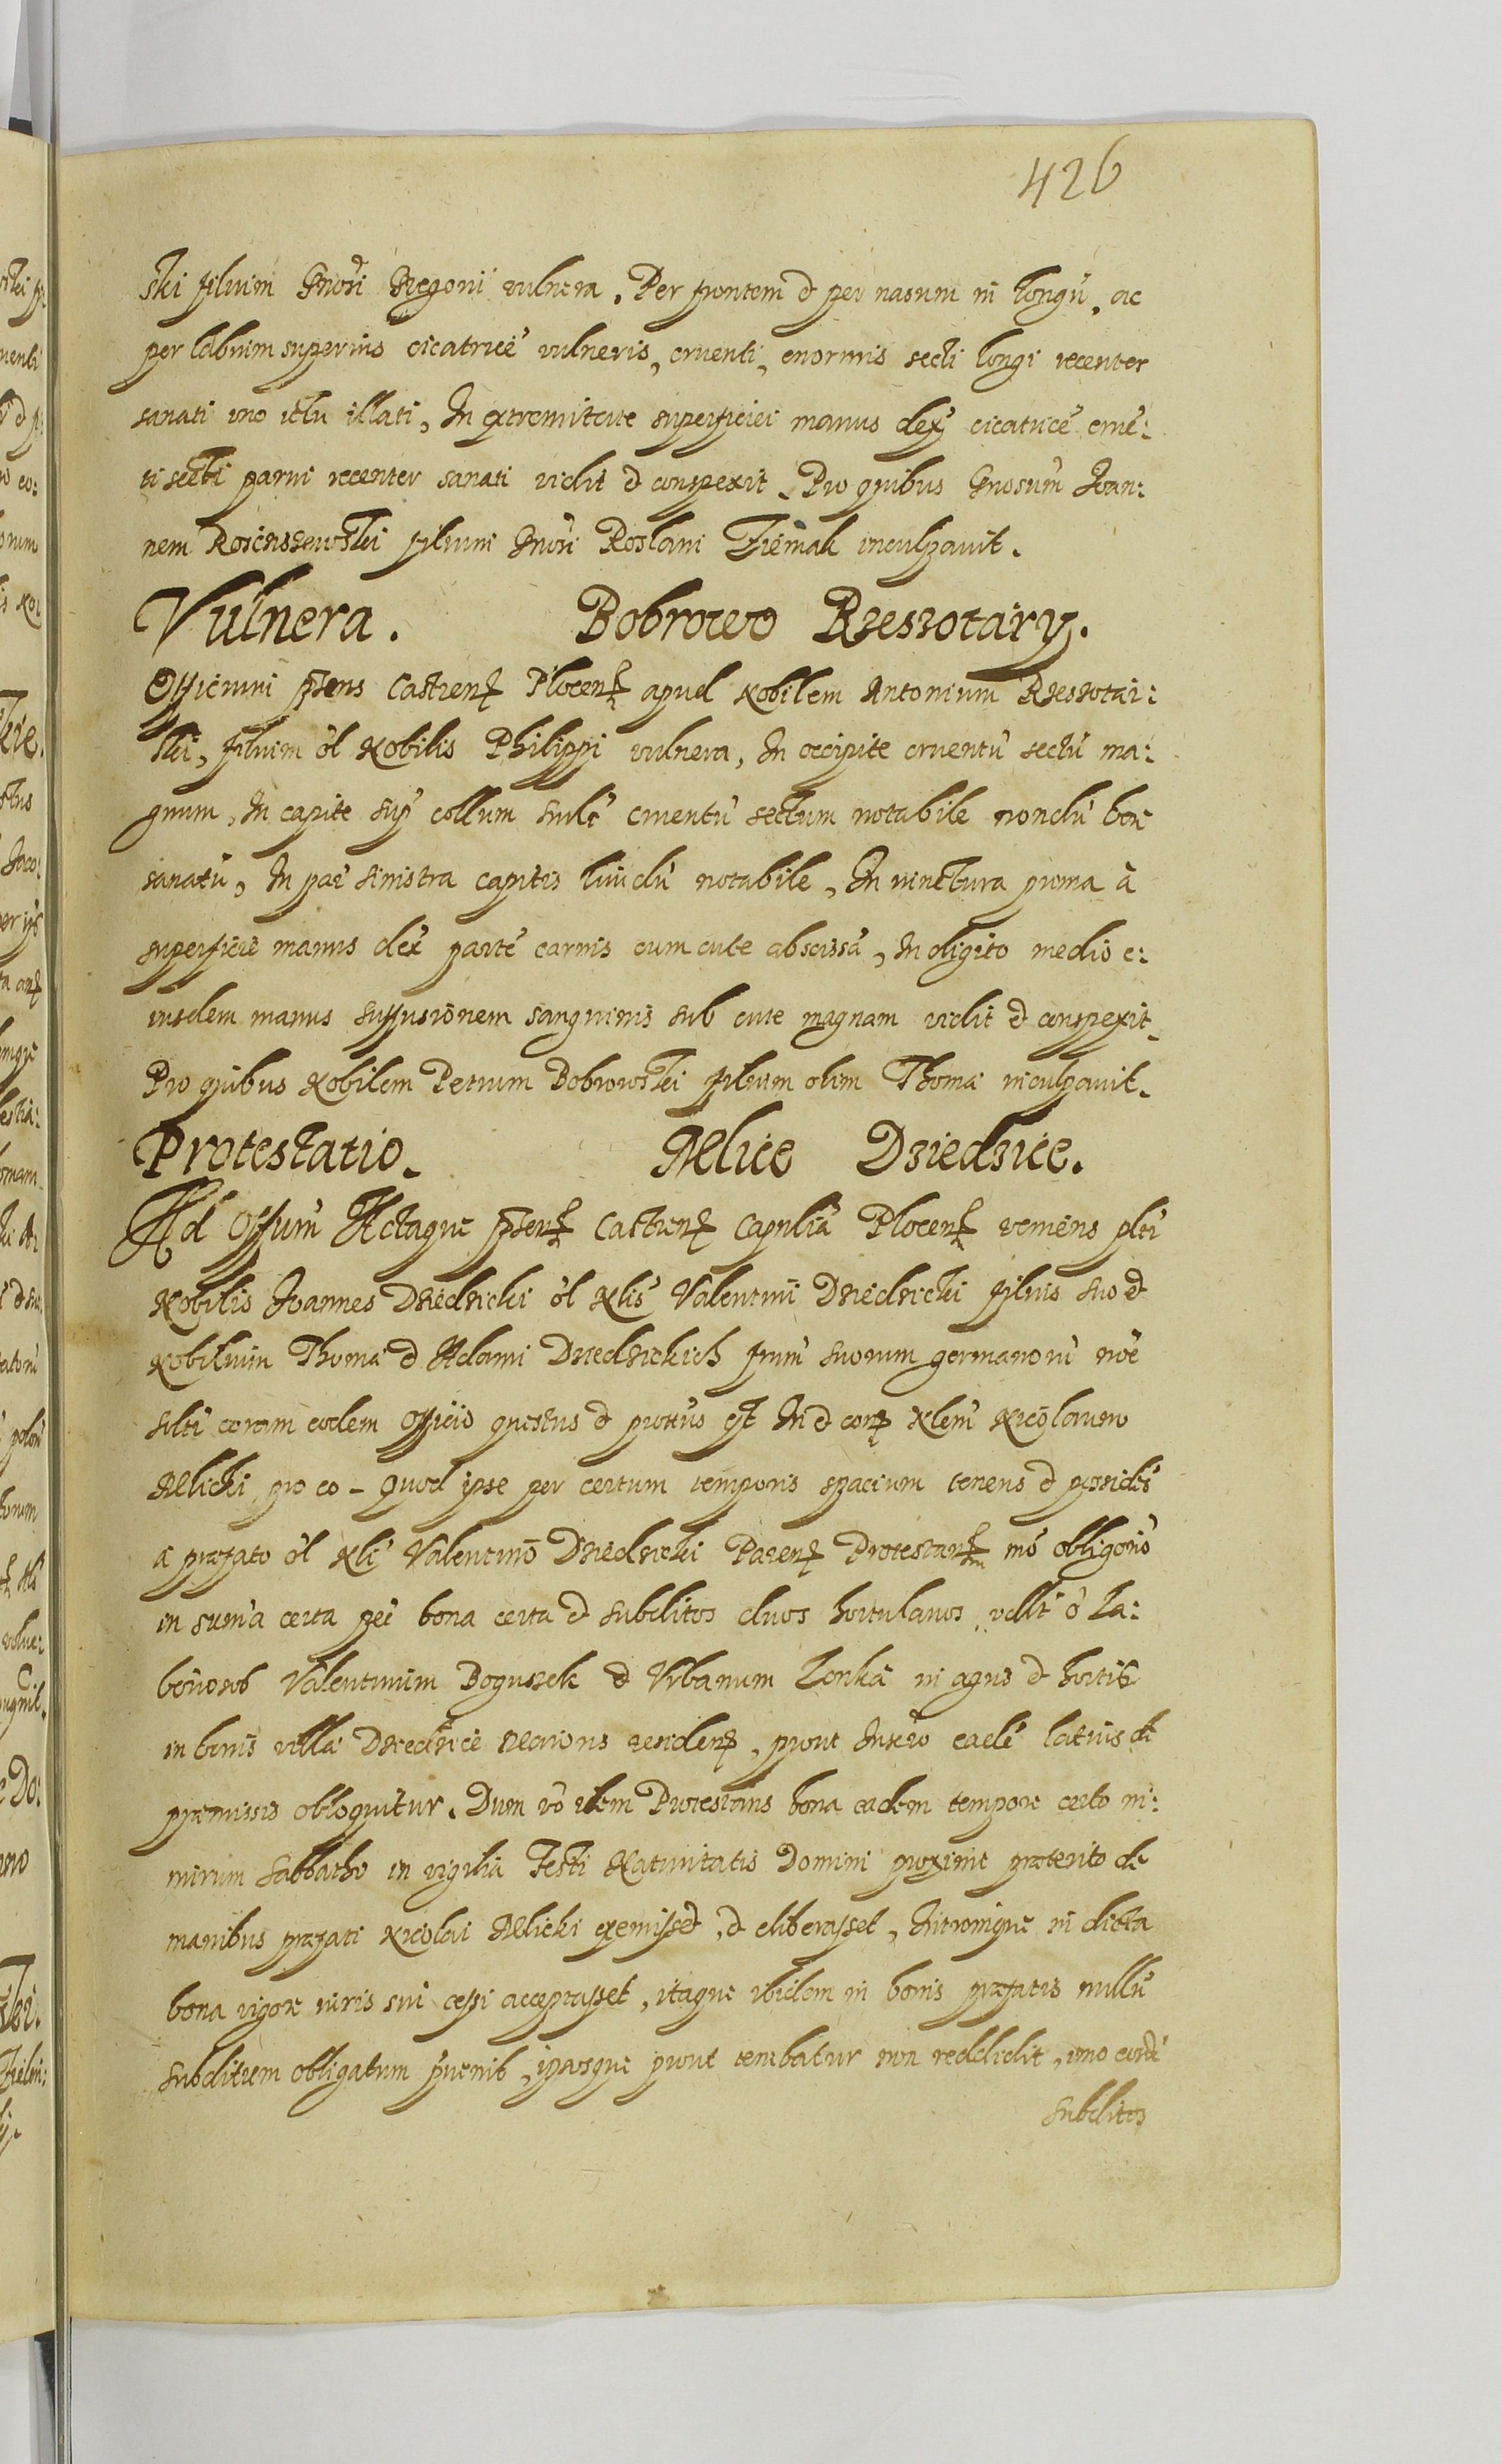 426
ski filium Gnosi Gregorii vulnera. Per frontem et per nasum in longū, ac
per labrum superius cicatricē vulneris, cruenti, enormis secti longi recenter
sanati uno ictu illati, In extremitate superficiei manus dex cicatricē cruē:
ti secti parvi recenter sanati vidit et conspexit. Pro quibus Gnosum Joan:
nem filium Gnosi Roslani inculpavit.
Vulnera. Bobrowo Rzeszotary.
Officium pñs Castreñ Ploceñ apud Nobilem Antonium Rzeszotar:
ski, filium ol Nobilis Philippi vulnera, In occipite cruentū sectū ma:
gnum, In capite sup collum cruentū sectum notabile nondū bene
sanatū, In par sinistra capitis lividū notabile, In iunctura prima à
superficie manus dex partē carnis cum cute abscissā, In digito medio e:
iusdem manus suffusionem sanguinis sub cute magnam vidit et conspexit.
Pro quibus Nobilem Petrum Bobrowski filium olim Thomæ inculpavit.
Protestatio. Mlice Dziedzice.
Ad Offum Actaque pñs Castreñ Capnlia Ploceñ veniens plr
Nobilis Joannes Dziedzicki ol Nlis Valentini Dziedzicki filius suo et
Nobilium Thomæ et Adami Dziedzickich frum suorum germanorū noē
coram eodem Officio questus et prottus est In et con Nlem Nicolaum
Mlicki pro eo – Quod ipse per certum temporis spacium tenens et possidēs
a præfato ol Nli Valentino Dziedzicki Pareñ Protestañ mō obligorio
in summa certa pec bona certa et subditos duos hortulanos La:
boriosos Valentinum Boguszek et Urbanum Lonka in agris et hortis
in bonis villæ Dziedzice resideñ, prout Inscrō eadē latius de
præmissis obloquitur. Dum vō idem Protestans bona eadem tempore certo ni:
mirum Sabbatho in vigilia Festi Nativitatis Domini proxime præterito de
manibus præfati Nicolai Mlicki exemisset, et eliberasset, Intromque in dicta
bona vigore iuris sui cessi acceptasset, itaque ibidem in bonis præfatis nullū
subditum obligatum inuenit, ipsosque prout tenebatur non reddidit, imo eosdē
subditos